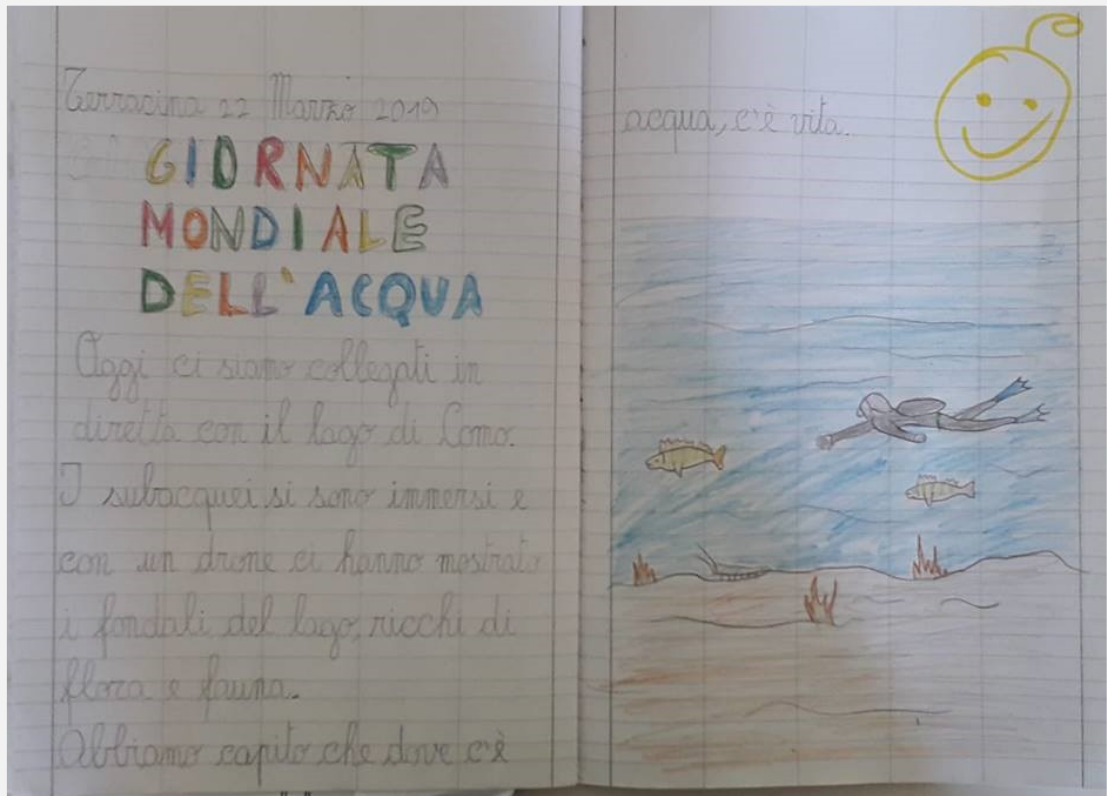 Terracina 22 Marzo 2019
GIORNATA
MONDIALE
DELL'ACQUA
Oggi ci siamo collegati in
diretta con il lago di Como.
I subacquei si sono immersi e
con un drone ci hanno mostrato
i fondali del lago, ricchi di
flora e fauna.
Abbiamo capito che dove c'è
acqua, c'è vita.